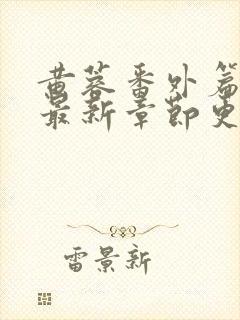 黄蓉番外篇
最新章节更
雷景新